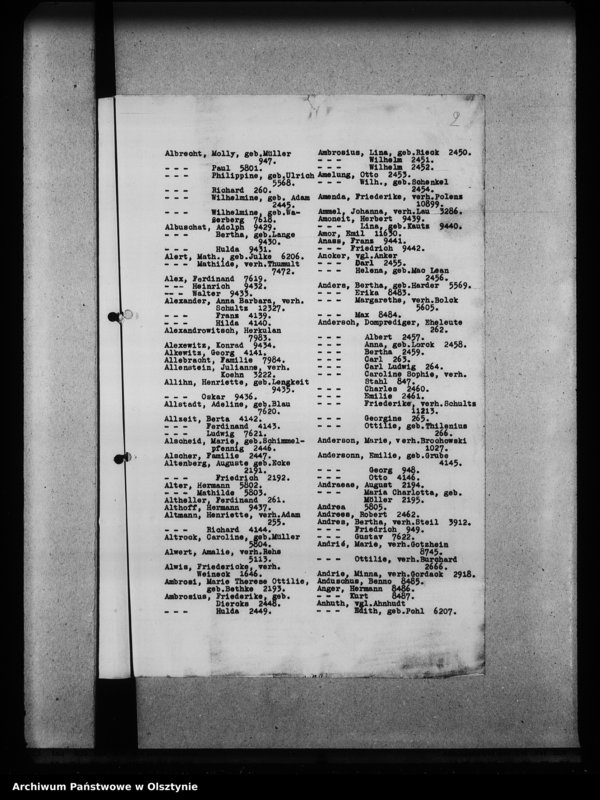 2
Albrecht, Molly, geb.Müller
947.
- - - Paul 5801.
- - - Philippine, geb.Ulrich
5568.
- - - Richard 260.
- - - Wilhelmine, geb. Adam
2445.
- - - Wilhelmine, geb.Wa-
ßerberg 7618.
Albuschat, Adolph 9429.
- - - Bertha, geb.Lange
9430.
- - - Hulda 9431.
Alert, Math., geb.Julke 6206.
- - - Mathilde, verh.Thumult
7472.
Alex, Ferdinand 7619.
- - - Heinrich 9432.
- - - Walter 9433.
Alexander, Anna Barbara, verh.
Schultz 12327.
- - - Franz 4139.
- - - Hilda 4140.
Alexandrowitsch, Herkulan
7983.
Alexewitz, Konrad 9434.
Alkewitz, Georg 4141.
Allebracht, Familie 7984.
Allenstein, Julianne, verh.
Koehn 3222.
Allihn, Henriette, geb.Lengkeit
9435.
- - - Oskar 9436.
Allstadt, Adeline, geb.Blau
7620.
Allzeit, Berta 4142.
- - - Ferdinand 4143.
- - - Ludwig 7621.
Alscheid, Marie, geb.Schimmel-
pfennig 2446.
Alscher, Familie 2447.
Altenberg, Auguste geb.Ecke
2191.
- - - Friedrich 2192.
Alter, Hermann 5802.
- - - Mathilde 5803.
Altheller, Ferdinand 261.
Althoff, Hermann 9437.
Altmann, Henriette, verh.Adam
255.
- - - Richard 4144.
Altrock, Caroline, geb.Müller
5804.
Alwert, Amalie, verh.Rehs
5113.
Alwis, Friedericke, verh.
Weineck 1646.
Ambrosi, Marie Therese Ottilie,
geb.Bethke 2193.
Ambrosius, Friederike, geb.
Diercks 2448.
- - - Hulda 2449.
Ambrosius, Lina, geb.Rieck 2450.
- - - Wilhelm 2451.
- - - Wilhelm 2452.
Amelung, Otto 2453.
- - - Wilh., geb.Schenkel
2454.
Amenda, Friederike, verh.Polenz
10899.
Ammel, Johanna, verh.Lau 3286.
Amoneit, Herbert 9439.
- - - Lina, geb.Kautz 9440.
Amor, Emil 11630.
Anass, Franz 9441.
- - - Friedrich 9442.
Ancker, vgl.Anker
- - - Darl 2455.
- - - Helena, geb.Mac Lean
2456.
Anders, Bertha, geb.Harder 5569.
- - - Erika 8483.
- - - Margarethe, verh.Bolck
5605.
- - - Max 8484.
Andersch, Domprediger, Eheleute
262.
- - - Albert 2457.
- - - Anna, geb.Lorck 2458.
- - - Bertha 2459.
- - - Carl 263.
- - - Carl Ludwig 264.
- - - Caroline Sophie, verh.
- - - Stahl 847.
- - - Charles 2460.
- - - Emilie 2461.
- - - Friederike, verh.Schultz
11213.
- - - Georgine 265.
- - - Ottilie, geb.Thilenius
266.
Anderson, Marie, verh.Brochowski
1027.
Andersonn, Emilie, geb.Grube
4145.
- - - Georg 948.
- - - Otto 4146.
Andrease, August 2194.
- - - Maria Charlotta, geb.
Möller 2195.
Andrea 5805.
Andrees, Robert 2462.
Andres, Bertha, verh.Steil 3912.
- - - Friedrich 949.
- - - Gustav 7622.
Andrié, Marie, verh.Gotzhein
8745.
- - - Ottilie, verh.Burchard
2666.
Andrie, Minna, verh.Gordack 2918.
Anduschus, Benno 8485.
Anger, Hermann 8486.
- - - Kurt 8487.
Anhuth, vgl.Ahnhudt
- - - Edith, geb.Pohl 6207.
Archiwum Państwowe w Olsztynie